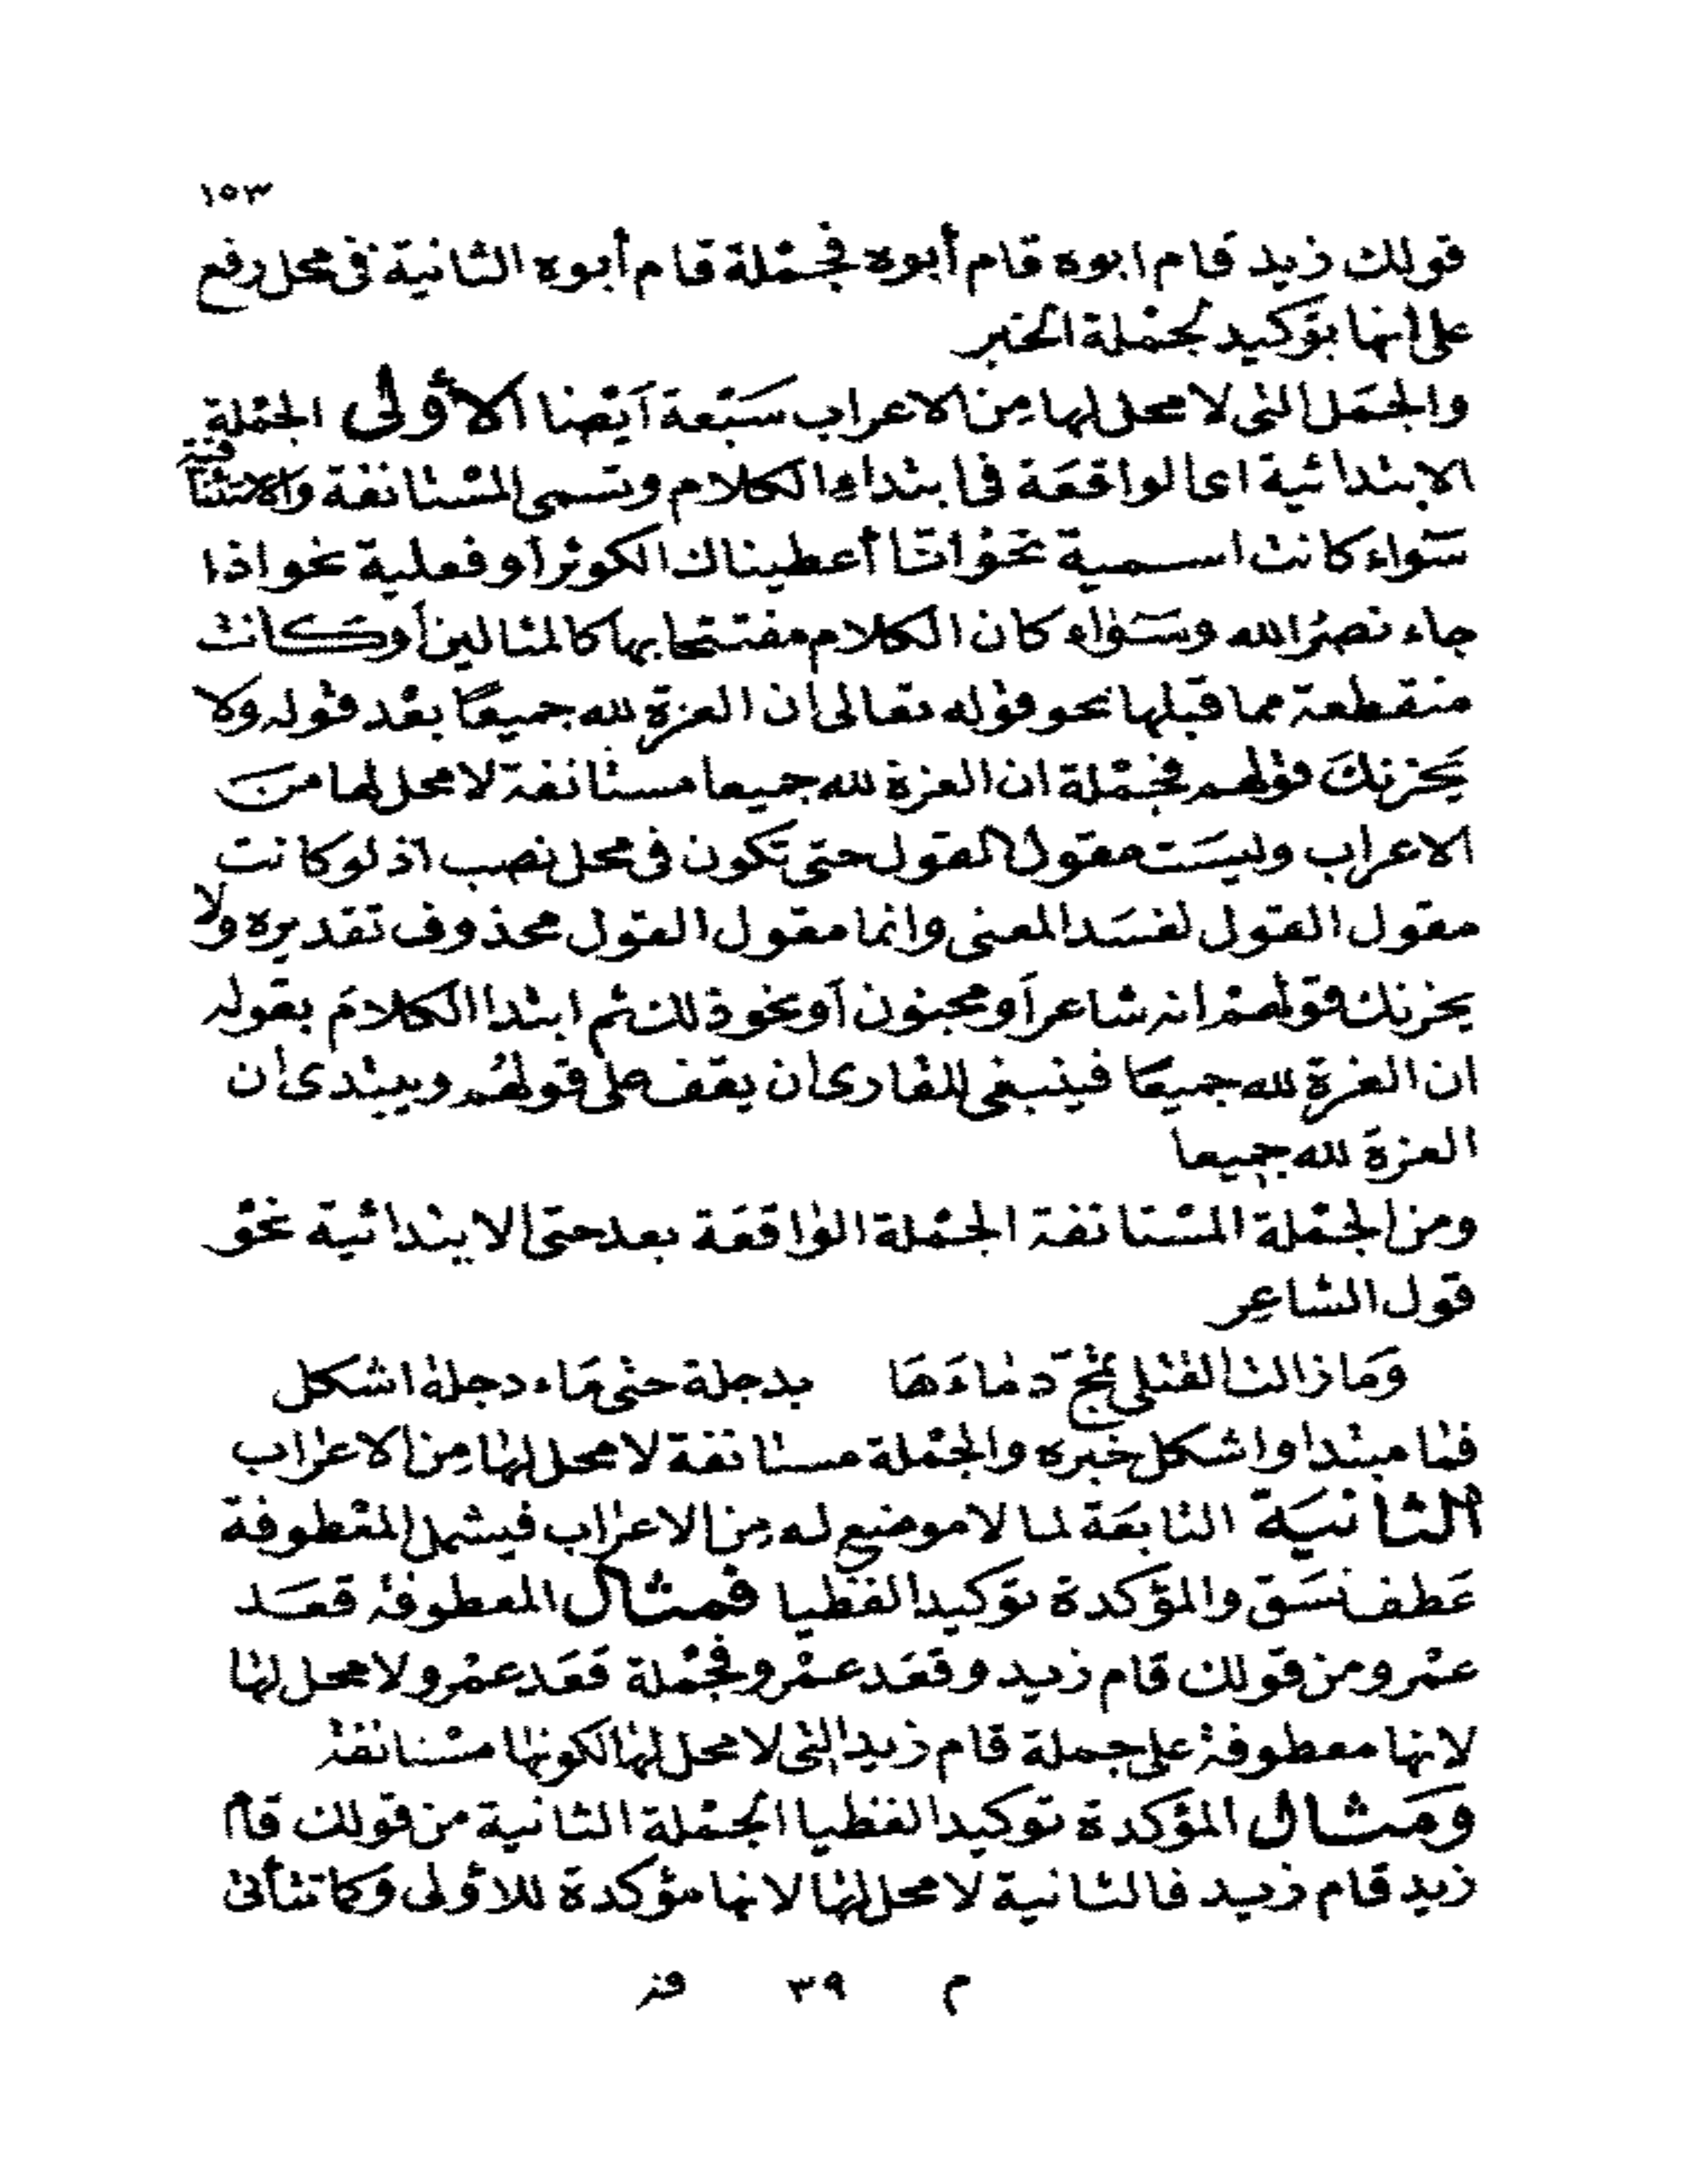 ١٥٣
قولك زيد قام ابوه قام أبوه فجملة قام أبوه الثانية فى محل رفع
على انها توكيد لجملة الخبر
والجمل التى لا محل لها من الاعراب سبعة أيضا الأولى الجملة
الابتدائية اى الواقعة فى ابتداء الكلام وتسمى المستانفة والاستئنافية
سواء كانت اسمية نحو انا أعطيناك الكوثر أو فعلية نحو اذا
جاء نصر الله وسواء كان الكلام مفتتحا بها كالمثالين أو كانت
منقطعة مما قبلها نحو قوله تعالى ان العزة لله جميعا بعد قوله ولا
يحزنك قولهم فجملة ان العزة لله جميعا مستانفة لا محل لها من
الاعراب وليست مقول القول حتى تكون فى محل نصب اذ لو كانت
مقول القول لفسد المعنى وانما مقول القول محذوف تقديره ولا
يحزنك قولهم انه شاعر أو مجنون أو نحو ذلك ثم ابتدا الكلام بقوله
ان العزة لله جميعا فينبغى للقارى ان يقف على قولهم ويبتدى ان
العزة لله جميعا
ومن الجملة المستانفة الجملة الواقعة بعد حتى الابتدائية نحو
قول الشاعر
وما زالت القتلى تمج دماءها بدجلة حتى ماء دجلة اشكل
فما مبتدا واشكل خبره والجملة مستانفة لا محل لها من الاعراب
الثانية التابعة لما لا موضع له من الاعراب فيشمل المعطوفة
عطف نسق والمؤكدة توكيدا لفظيا فمثال المعطوفة قعد
عمرو من قولك قام زيد وقعد عمرو فجملة قعد عمرو لا محل لها
لانها معطوفة على جملة قام زيد التى لا محل لها لكونها مستانفة
ومثال المؤكدة توكيدا لفظيا الجملة الثانية من قولك قام
زيد قام زيد فالثانية لا محل لها لانها مؤكدة للأولى وكا تثأنى
م ٣٩ فز